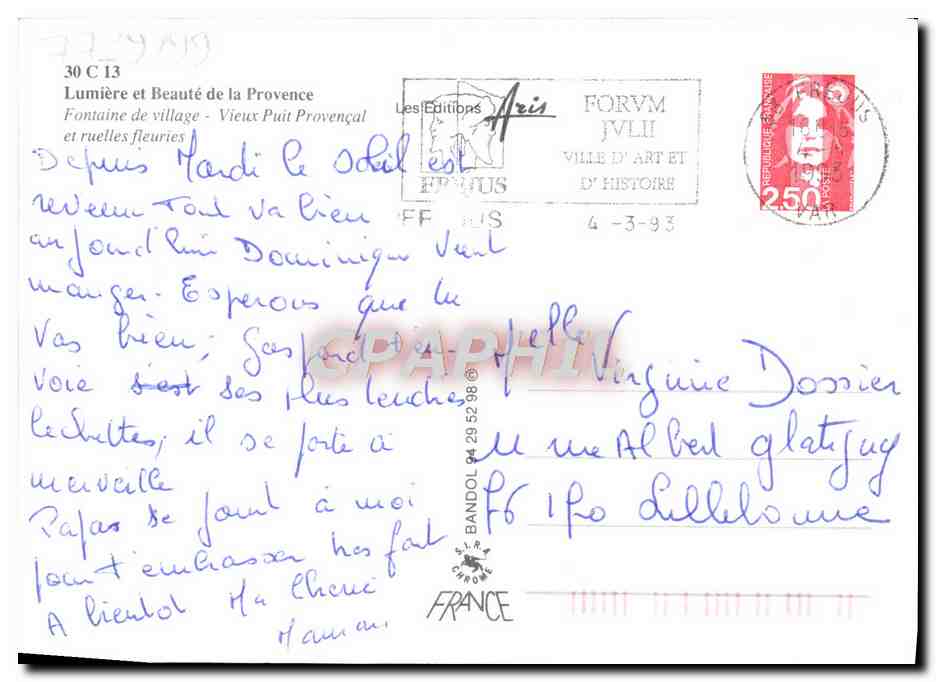 30 C 13
Lumière et Beauté de la Provence
Fontaine de village - Vieux Puit Provençal
et ruelles fleuries
Les Editions Aris
FORVM
JVLII
VILLE D'ART ET
D'HISTOIRE
FREJUS
4 -3-93
FREJUS
VAR
REPUBLIQUE FRANÇAISE
LA POSTE
2,50
Depuis Mardi le soleil est
revenu tout va bien
aujourd'hui Dominique vient
manger. Esperons que tu
vas bien,
voie ses plus tendres
lechettes, il se porte à
merveille
Papa se joint à moi
pour t'embrasser tres fort
A bientot Ma Cherie
Maman
CPAPHIL
Melle Virginie Dossier
11 rue Albert Glatigny
76 170 Lillebonne
BANDOL 94 29 52 98 ®
S.I.R.A.
CHROME
FRANCE